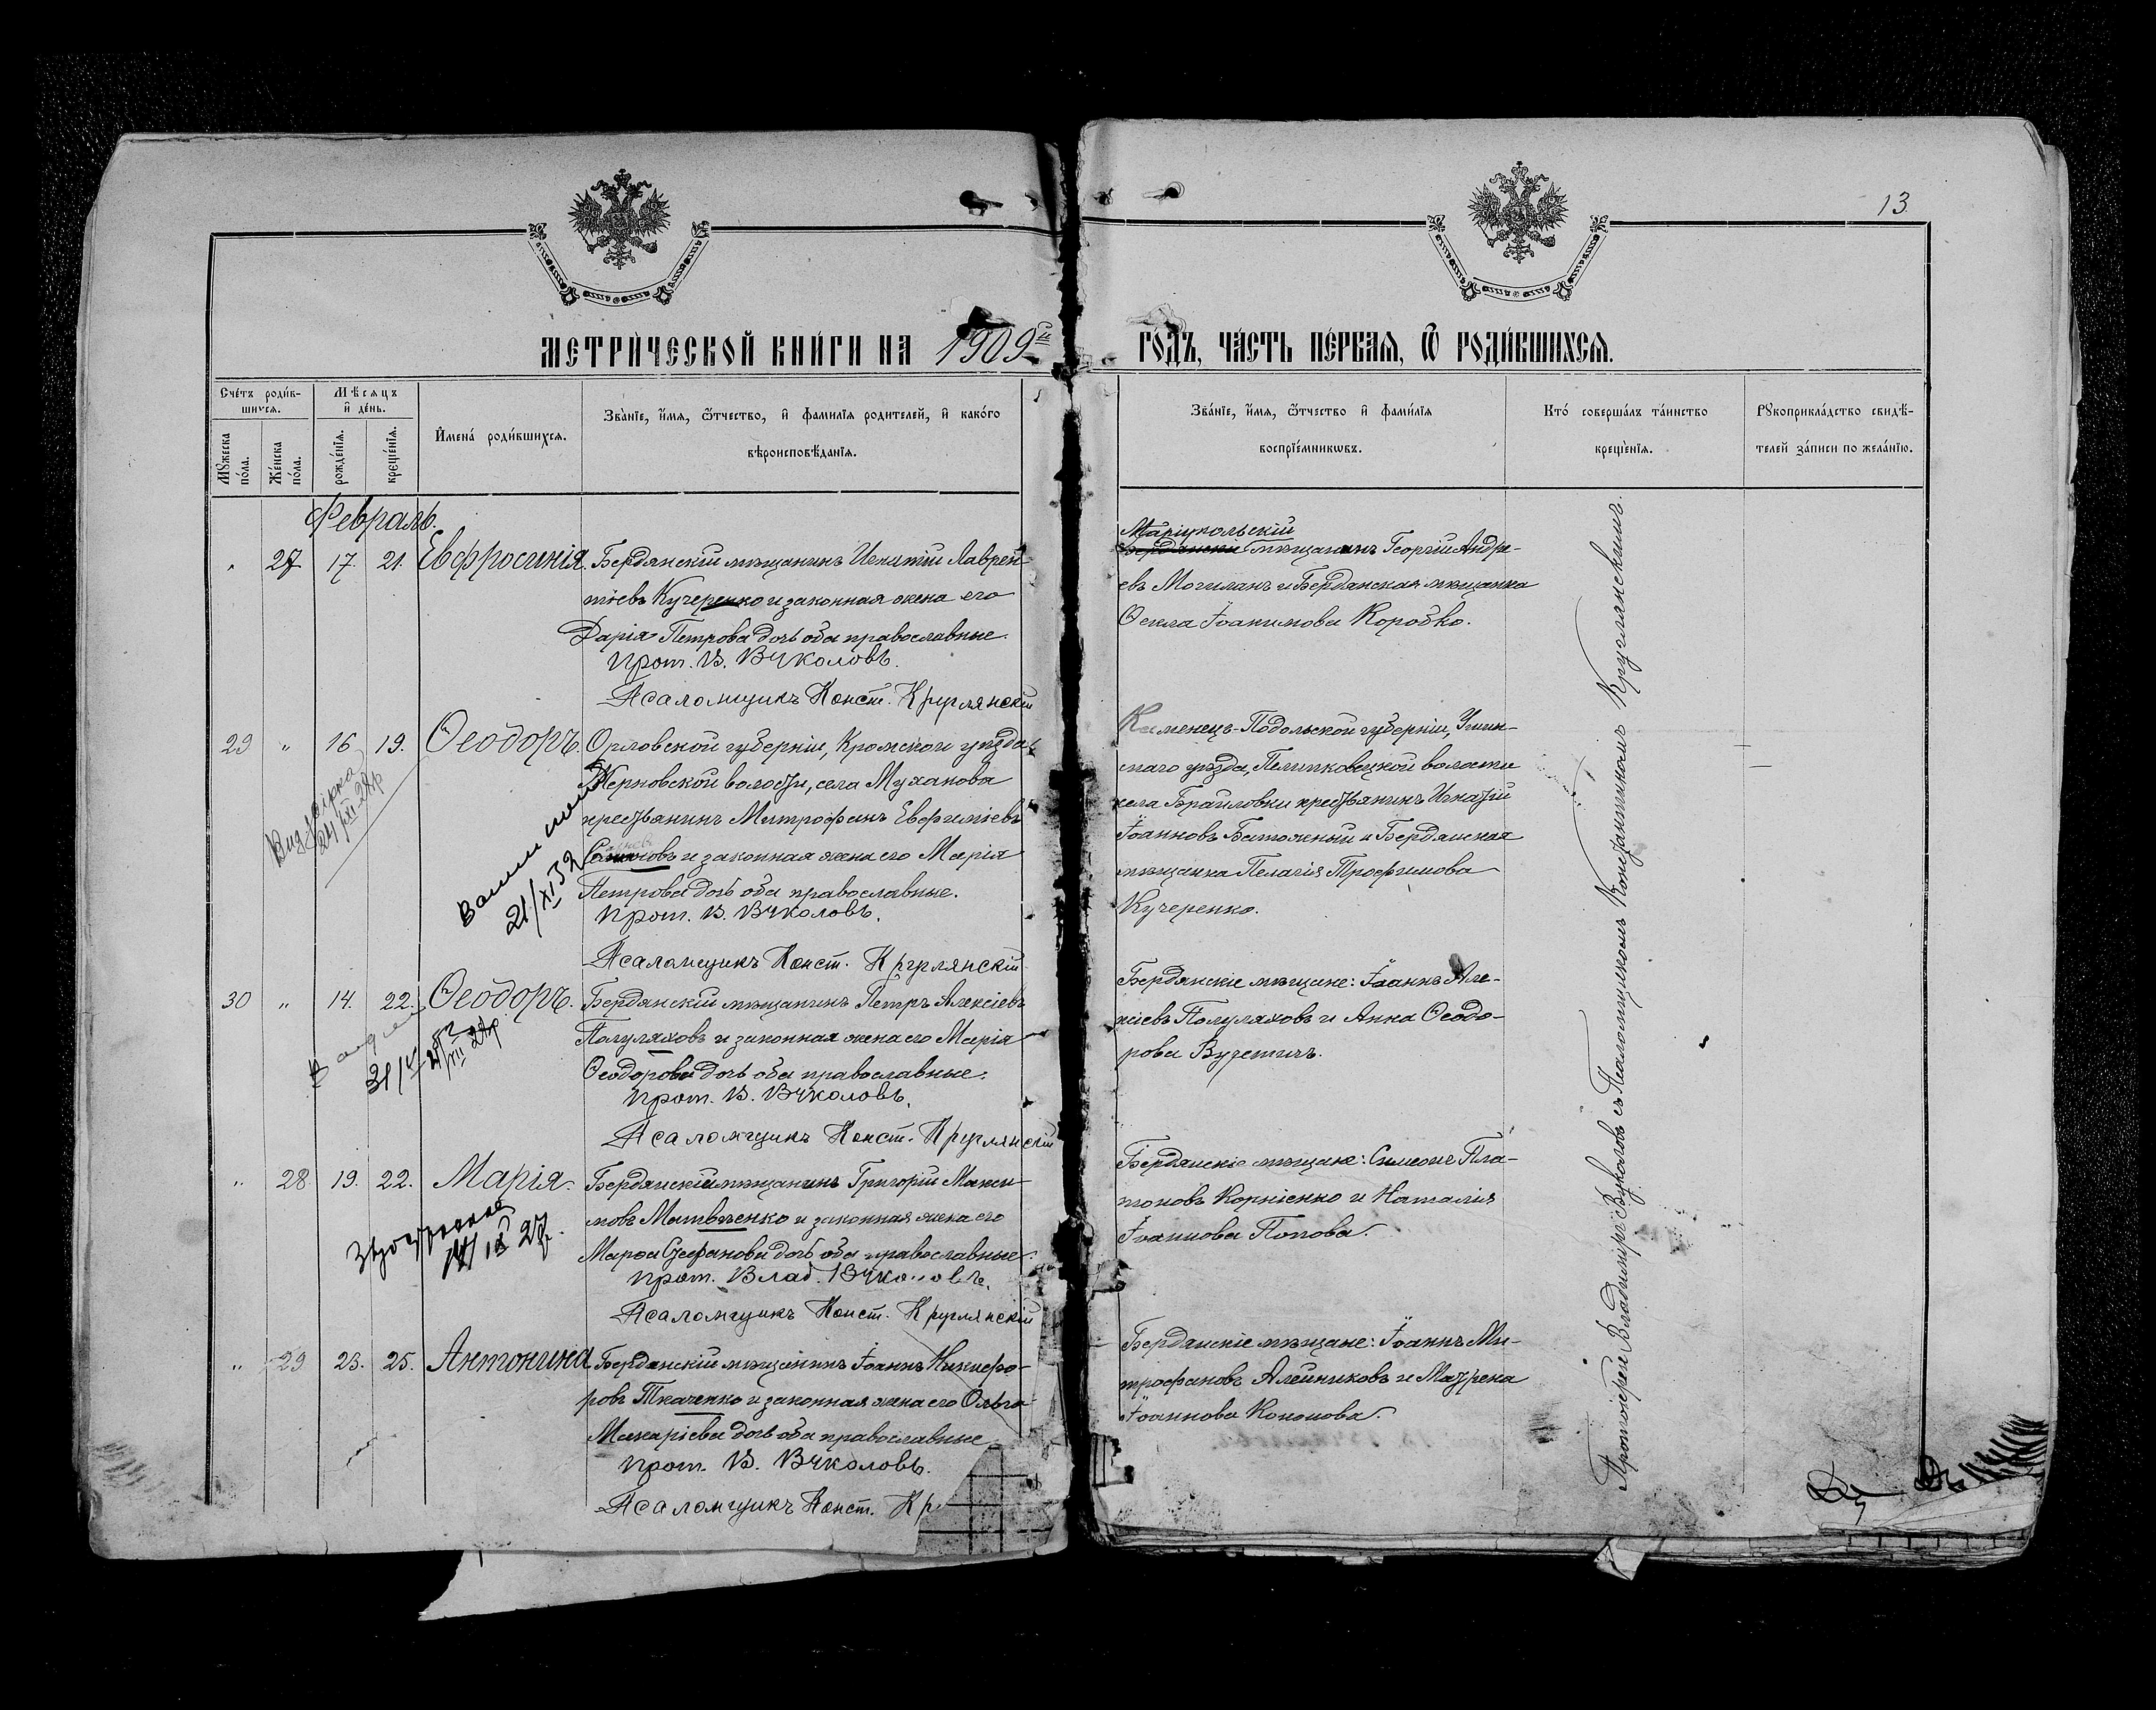 13
МЕТРИЧЕСКОЙ КНИГИ НА 1909й ГОДЪ, ЧАСТЬ ПЕРВАЯ, Ѿ РОДИВШИХСЯ.
Счетъ родившихся.
Мужеска пола.
Женска пола.
Мѣсяцъ и день.
рожденія.
крещенія.
Имена родившихся.
Званіе, имя, ѿтчество, и фамилія родителей, и какого
вѣроисповѣданія.
Званіе, имя, ѿтчество и фамилія
воспріемникѡвъ.
Кто совершалъ таинство
крещенія.
Рукоприкладство свидѣ-
телей записи по желанію.
Февраль.
" 27 17. 21. Евфросинія. Бердянскій мѣщанинъ Игнатій Лаврен-
тіевъ Кучеренко и законная жена его
Дарія Петрова дочь оба православные.
Прот. В. Вуколовъ.
Псаломщикъ Конст. Круглянскій
Маріупольскій
Бердянскій мѣщанинъ Георгій Андре-
евъ Могиланъ и Бердянская мѣщанка
Ѳекла Іоакимова Коробко.
29 " 16 19. Ѳеодоръ. Орловской губерніи, Кромского уѣзда
Жерновской волости, села Муханова
крестьянинъ Митрофанъ Евфиміевъ
и законная жена его Марія
Петрова дочь оба православные.
Прот. В. Вуколовъ.
Псаломщикъ Конст. Круглянскій
21/XI 32
Каменецъ-Подольской губерніи, Ушиц-
каго уѣзда, волости
села Браиловки крестьянинъ Игнатій
Іоанновъ Батоженый и Бердянская
мѣщанка Пелагія Трофимова
Кучеренко.
30 " 14. 22. Ѳеодоръ. Бердянскій мѣщанинъ Петръ Алексіевъ
Полуляховъ и законная жена его Марія
Ѳеодорова дочь оба православные.
Прот. В. Вуколовъ.
Псаломщикъ Конст. Круглянскій
Бердянскіе мѣщане: Іоаннъ Але-
ксіевъ Полуляховъ и Анна Ѳеодо-
рова Вучетичъ.
" 28 19. 22. Марія. Бердянскій мѣщанинъ Григорій Макси-
мовъ Матвѣенко и законная жена его
Марѳа Стефанова дочь оба православные.
Прот. Влад. Вуколовъ.
Псаломщикъ Конст. Круглянскій
Бердянскіе мѣщане: Симеонъ Пла-
тоновъ Корніенко и Наталія
Іоаннова Попова.
" 29 23. 25. Антонина. Бердянскій мѣщанинъ Іоаннъ Никифо-
ровъ Ткаченко и законная жена его Ольга
Макаріева дочь оба православные
Прот. В. Вуколовъ.
Псаломщикъ Конст. Кр
Бердянскіе мѣщане: Іоаннъ Ми-
трофановъ Алейниковъ и Маѵрека
Іоаннова Кононова.
Протоіерей Владиміръ Вуколовъ съ Псаломщикомъ Константиномъ Круглянскимъ.